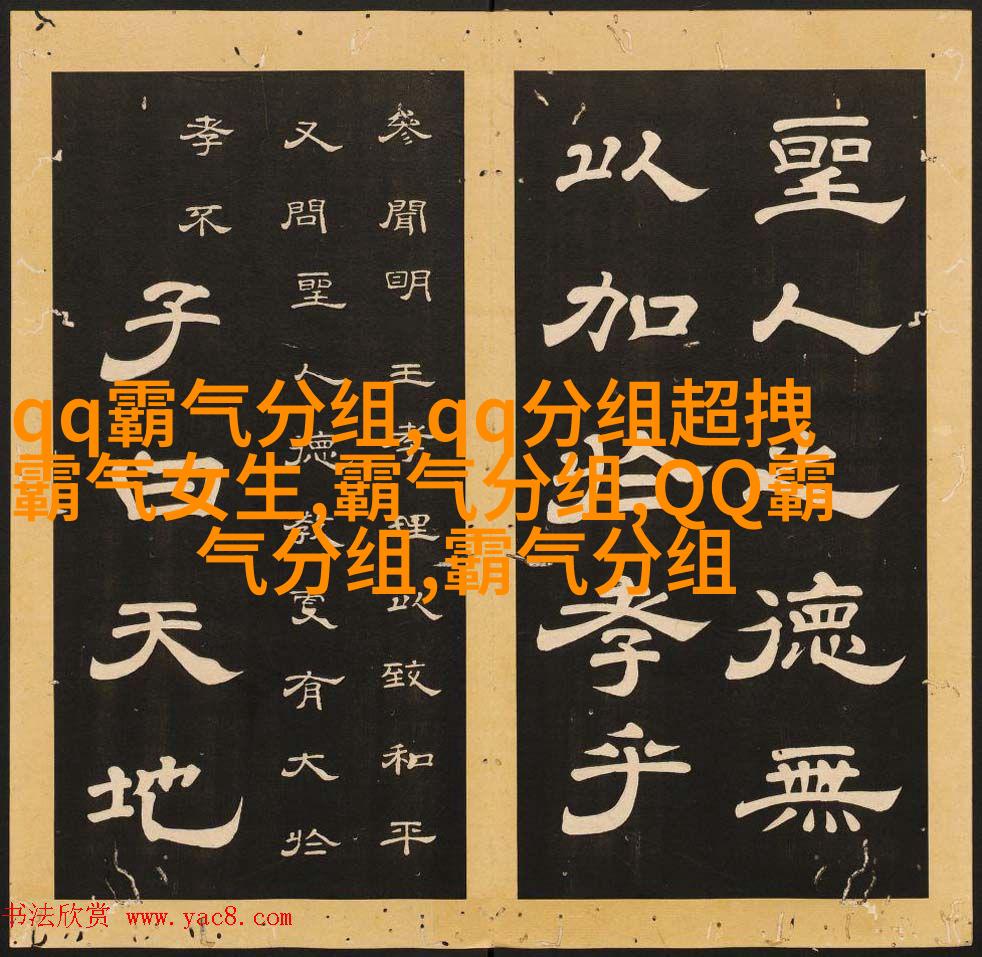 qq霸气分组,qq分组超拽
霸气女生,霸气分组,QQ霸
气分组,霸气分组
聖人之德無
以加孝乎
參聞眀王孝理以致和平
又問聖人德教更有大於
孝不
子曰天地
书法欣赏 www.yac8.com